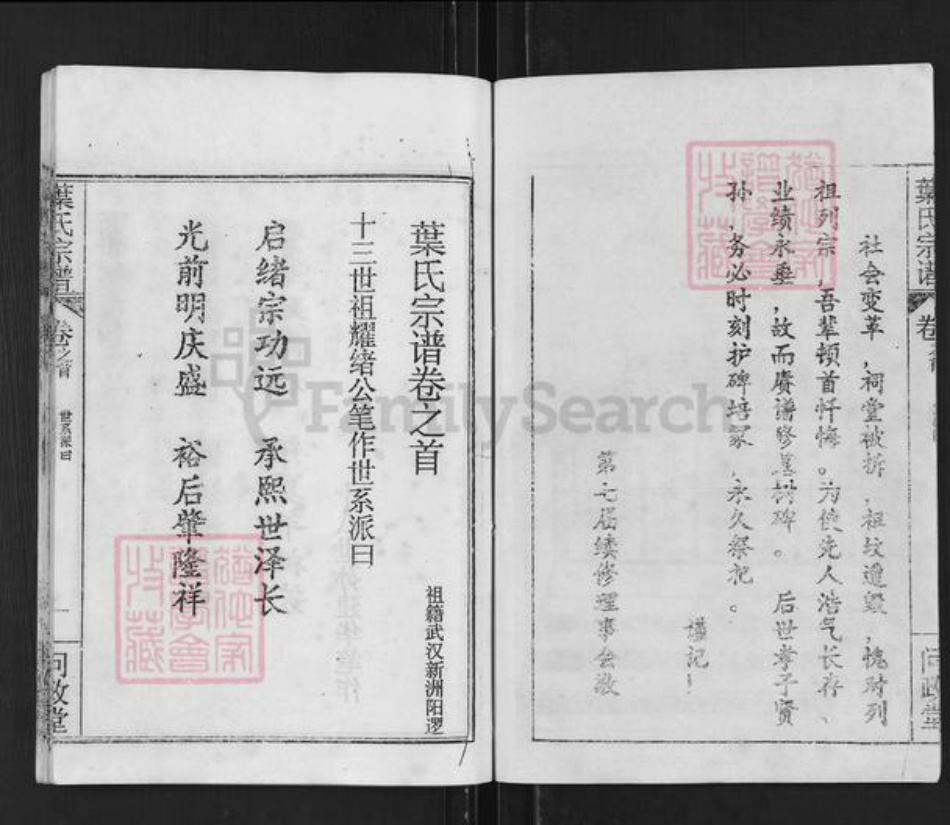 葉氏宗谱
卷
问政堂
社会变革，祠堂被拆，祖坟遭毁，愧对列
祖列宗，吾辈顿首忏悔。为使先人浩气长存、
业绩永垂，故而赓谱修墓树碑。后世孝子贤
孙，务必时刻护碑培冢，永久祭祀。
谨记！
第七届续修理事会敬
葉氏宗谱卷之首
祖籍武汉新洲阳逻
十三世祖耀绪公笔作世系派曰
启绪宗功远 承熙世泽长
光前明庆盛 裕后肇隆祥
葉氏宗谱
卷之首
世系派曰
一
问政堂
FamilySearch